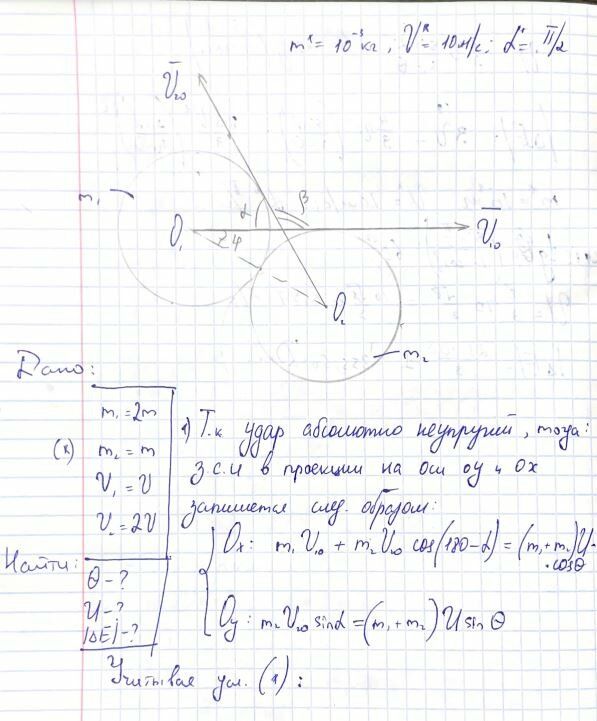 m* = 10⁻³ кг ; V* = 10 м/с ; α* = π/2
V̄₂₀
m₁
α
β
O₁
∠φ
V̄₁₀
O₂
m₂
Дано:
m₁ = 2m
m₂ = m
V₁ = V
V₂ = 2V
Найти:
θ - ?
U - ?
|ΔE| - ?
1) Т.к удар абсолютно неупругий, тогда:
З.С.И в проекции на оси oy и Ox
запишется след. образом:
Ox: m₁V₁₀ + m₂V₂₀ cos(180-α) = (m₁+m₂)U·
·cosθ
Oy: m₂V₂₀ sinα = (m₁+m₂)U sinθ
Учитывая усл. (1):